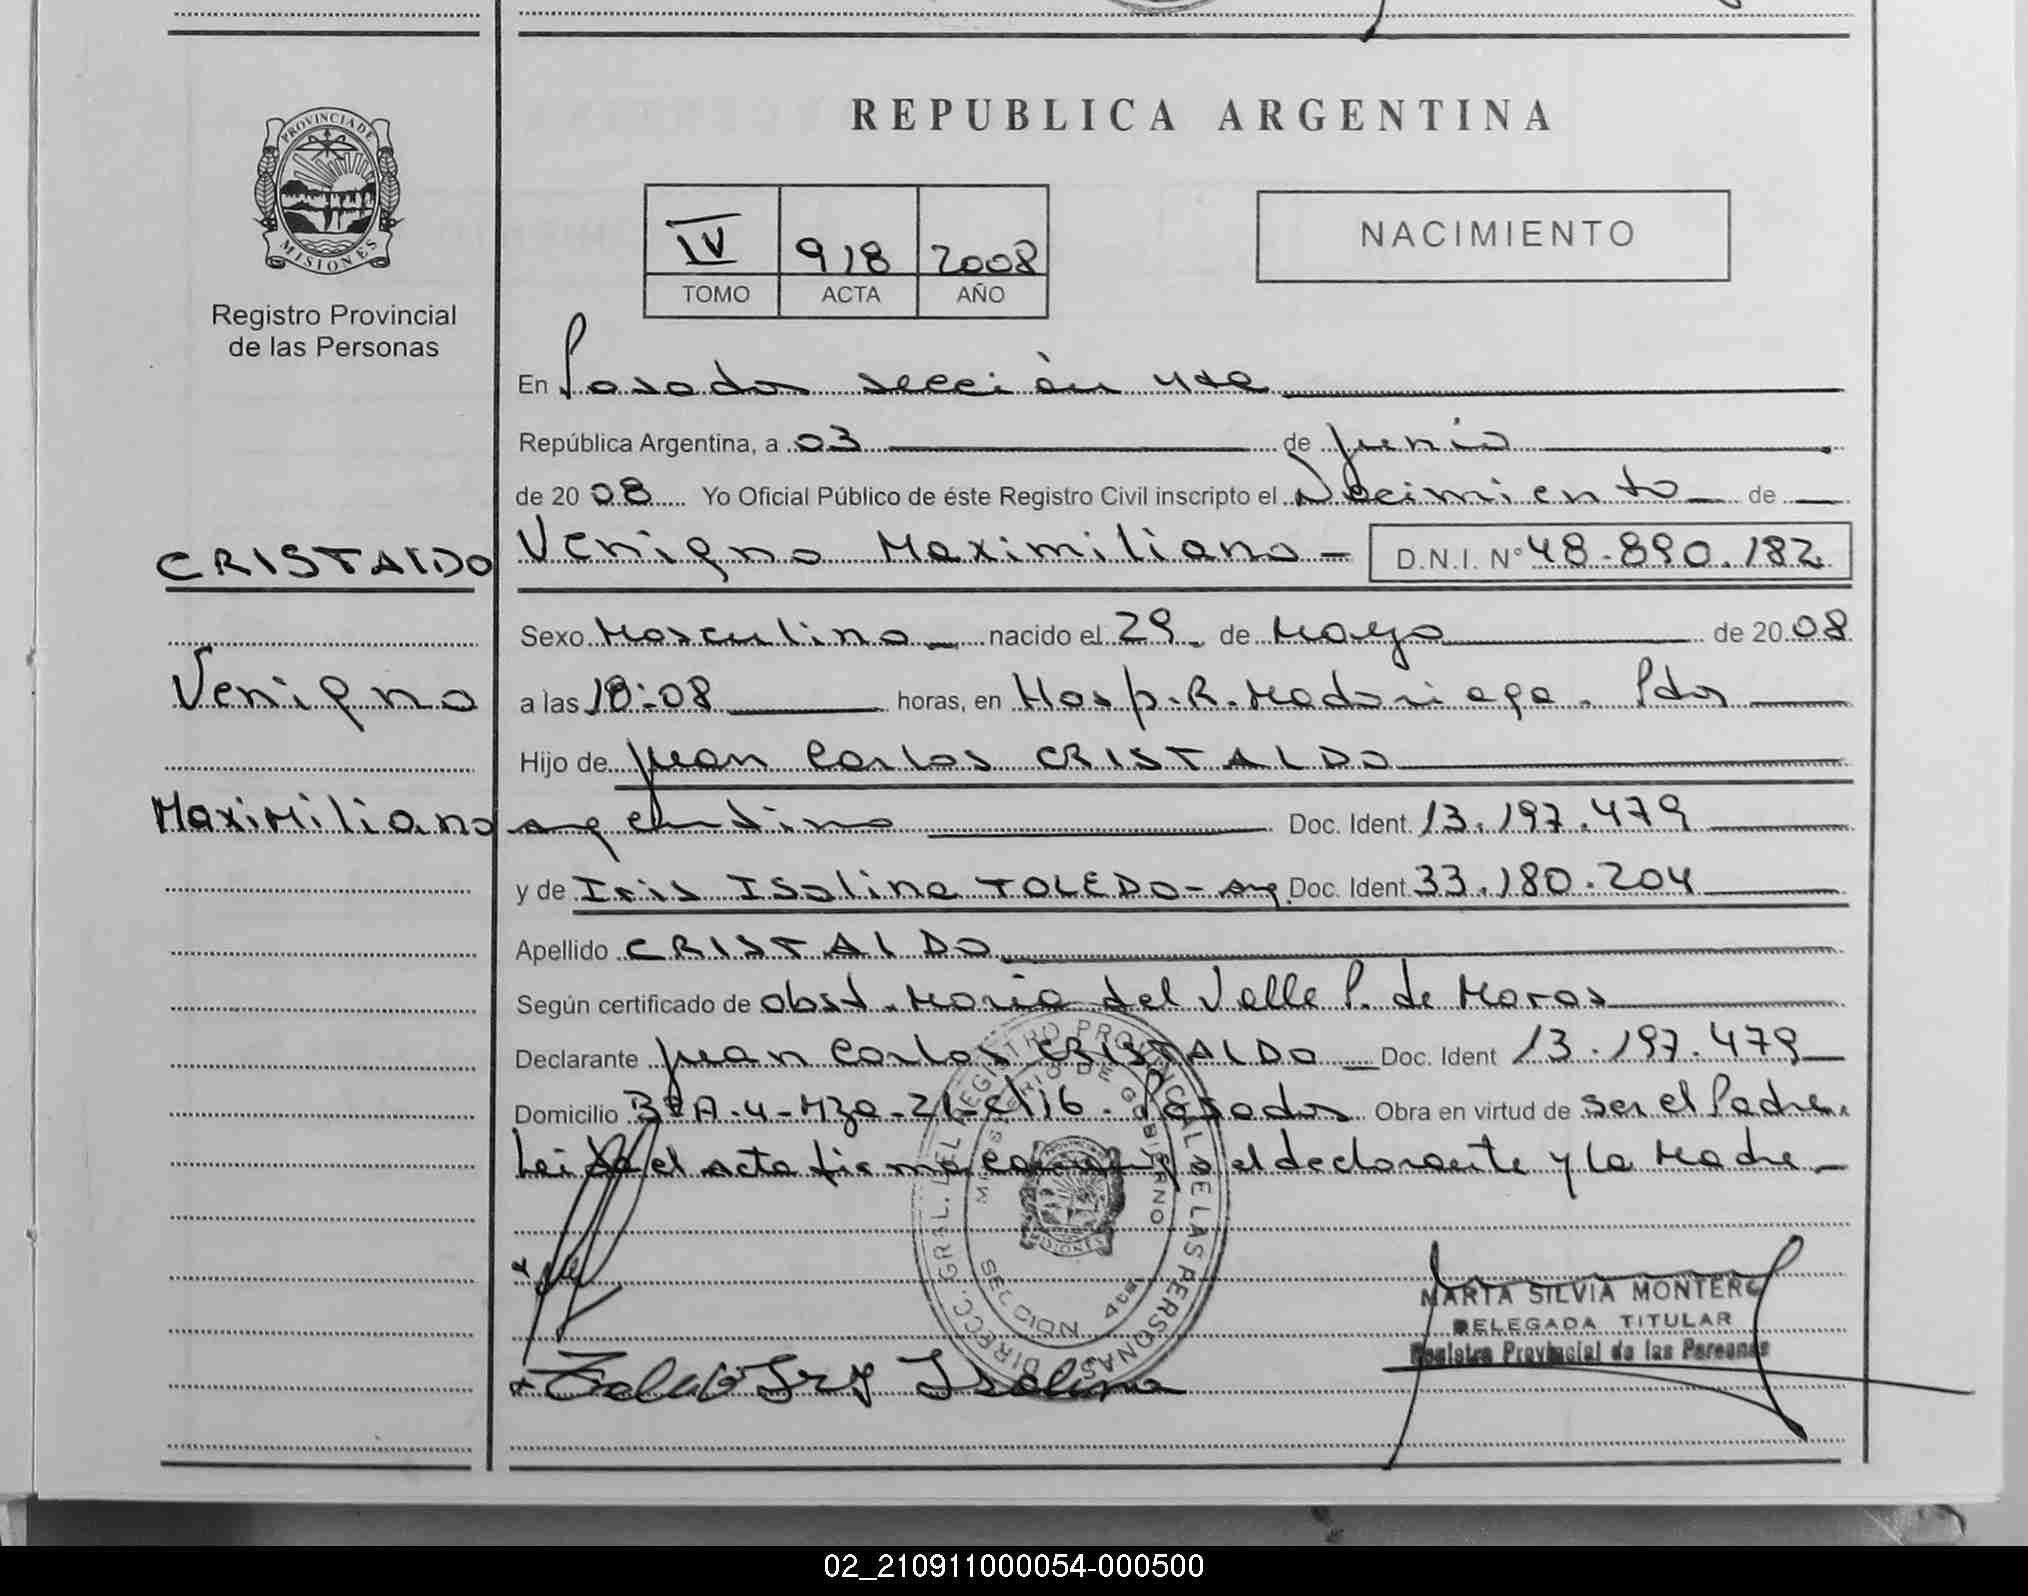 REPUBLICA ARGENTINA
PROVINCIA DE MISIONES
Registro Provincial
de las Personas
IV 918 2008
TOMO ACTA AÑO
NACIMIENTO
En Posadas sección 4ta
República Argentina, a 03 de junio
de 20 08 Yo Oficial Público de éste Registro Civil inscripto el Nacimiento de
CRISTALDO
Venigno Maximiliano - D.N.I. N° 48.890.182
Sexo Masculino nacido el 29 de Mayo de 20 08
Venigno
a las 18:08 horas, en Hosp. R. Madariaga. Pdas
Hijo de Juan Carlos CRISTALDO
Maximiliano
argentino Doc. Ident. 13.197.479
y de Iris Isolina TOLEDO - arg. Doc. Ident. 33.180.204
Apellido CRISTALDO
Según certificado de obst. Maria del Valle P. de Moras
Declarante Juan Carlos CRISTALDO Doc. Ident 13.197.479
Domicilio Mza - 21 - C/116. Posadas Obra en virtud de ser el Padre.
Leida el acta firma conmigo el declarante y la Madre -
DIRECC. GRAL. DEL REGISTRO PROVINCIAL DE LAS PERSONAS
MINISTERIO DE GOBIERNO
MISIONES
SECCION 4ta.
MARTA SILVIA MONTERO
DELEGADA TITULAR
Registro Provincial de las Personas
Isolina
02_210911000054-000500